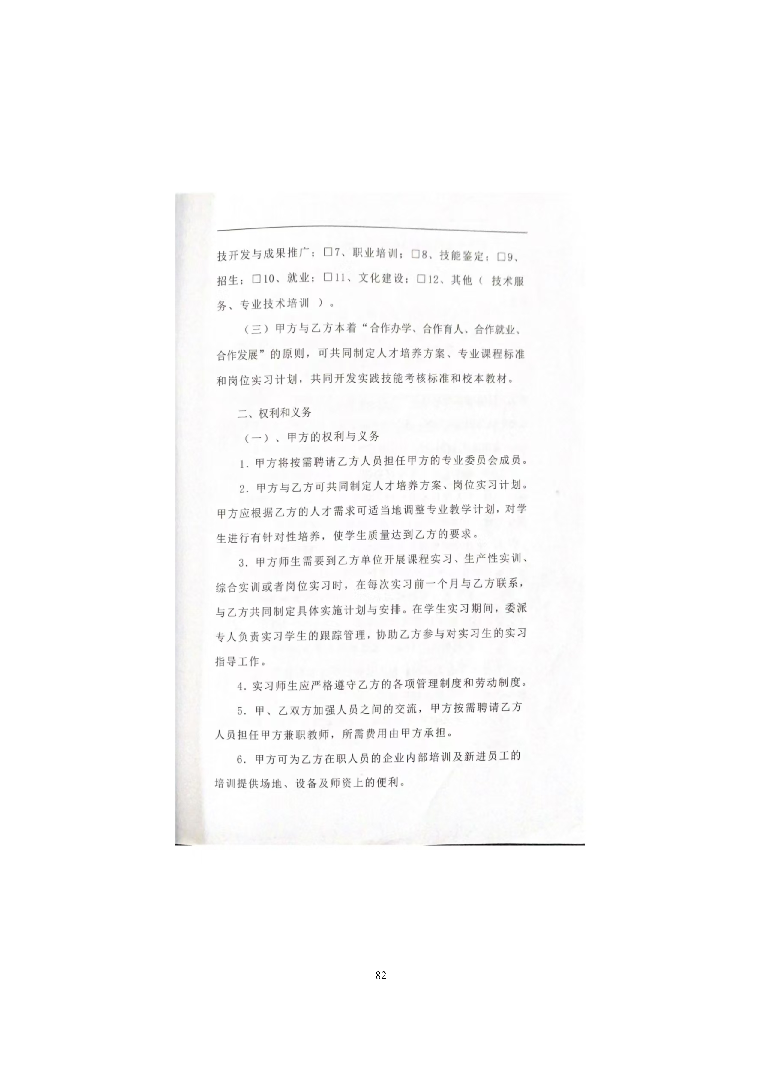 技开发与成果推广；□7、职业培训；□8、技能鉴定；□9、
招生；□10、就业；□11、文化建设；□12、其他（ 技术服
务、专业技术培训 ）。
（三）甲方与乙方本着“合作办学、合作育人、合作就业、
合作发展”的原则，可共同制定人才培养方案、专业课程标准
和岗位实习计划，共同开发实践技能考核标准和校本教材。
二、权利和义务
（一）、甲方的权利与义务
1．甲方将按需聘请乙方人员担任甲方的专业委员会成员。
2．甲方与乙方可共同制定人才培养方案、岗位实习计划。
甲方应根据乙方的人才需求可适当地调整专业教学计划，对学
生进行有针对性培养，使学生质量达到乙方的要求。
3．甲方师生需要到乙方单位开展课程实习、生产性实训、
综合实训或者岗位实习时，在每次实习前一个月与乙方联系，
与乙方共同制定具体实施计划与安排。在学生实习期间，委派
专人负责实习学生的跟踪管理，协助乙方参与对实习生的实习
指导工作。
4．实习师生应严格遵守乙方的各项管理制度和劳动制度。
5．甲、乙双方加强人员之间的交流，甲方按需聘请乙方
人员担任甲方兼职教师，所需费用由甲方承担。
6．甲方可为乙方在职人员的企业内部培训及新进员工的
培训提供场地、设备及师资上的便利。
82